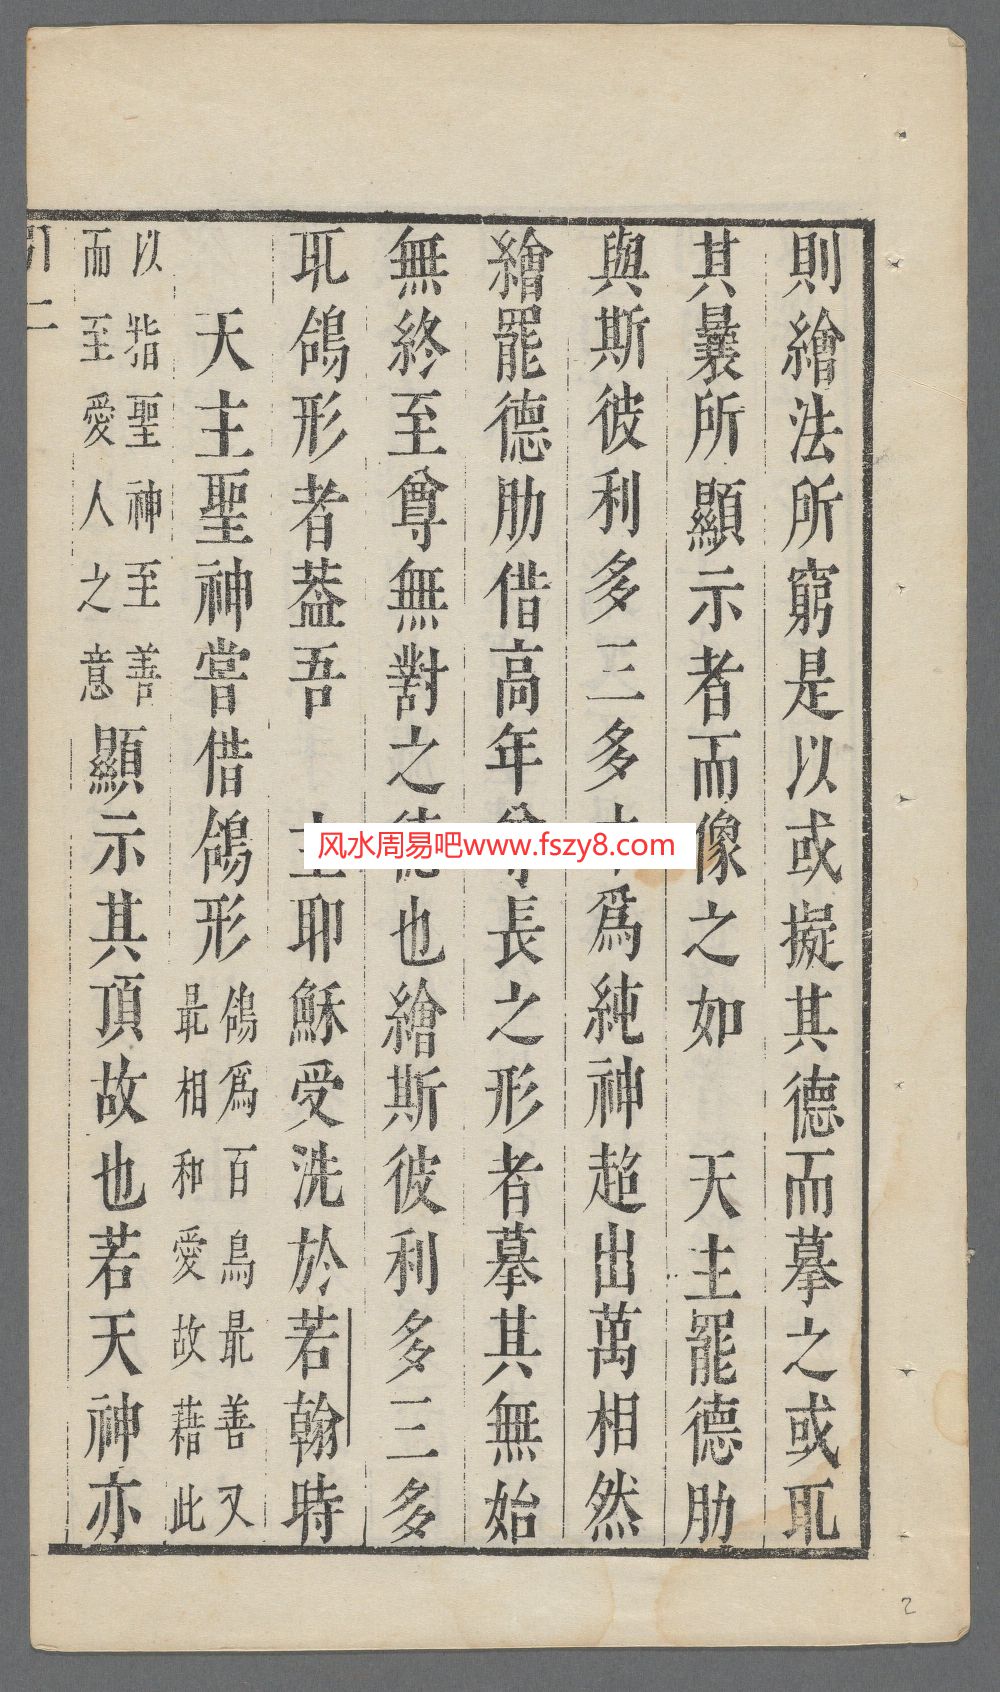 則繪法所窮是以或擬其德而摹之或耴
其曩所顯示者而像之如 天主罷德肋
與斯彼利多三多爲純神超出萬相然
繪罷德肋借高年尊長之形者摹其無始
無終至尊無對之德也繪斯彼利多三多
耴鴿形者葢吾 主耶穌受洗於若翰時
天主聖神嘗借鴿形鴿爲百鳥最善又
最相和愛故藉此
以指聖神至善
而至愛人之意顯示其頂故也若天神亦
引 二
风水周易吧www.fszy8.com
2